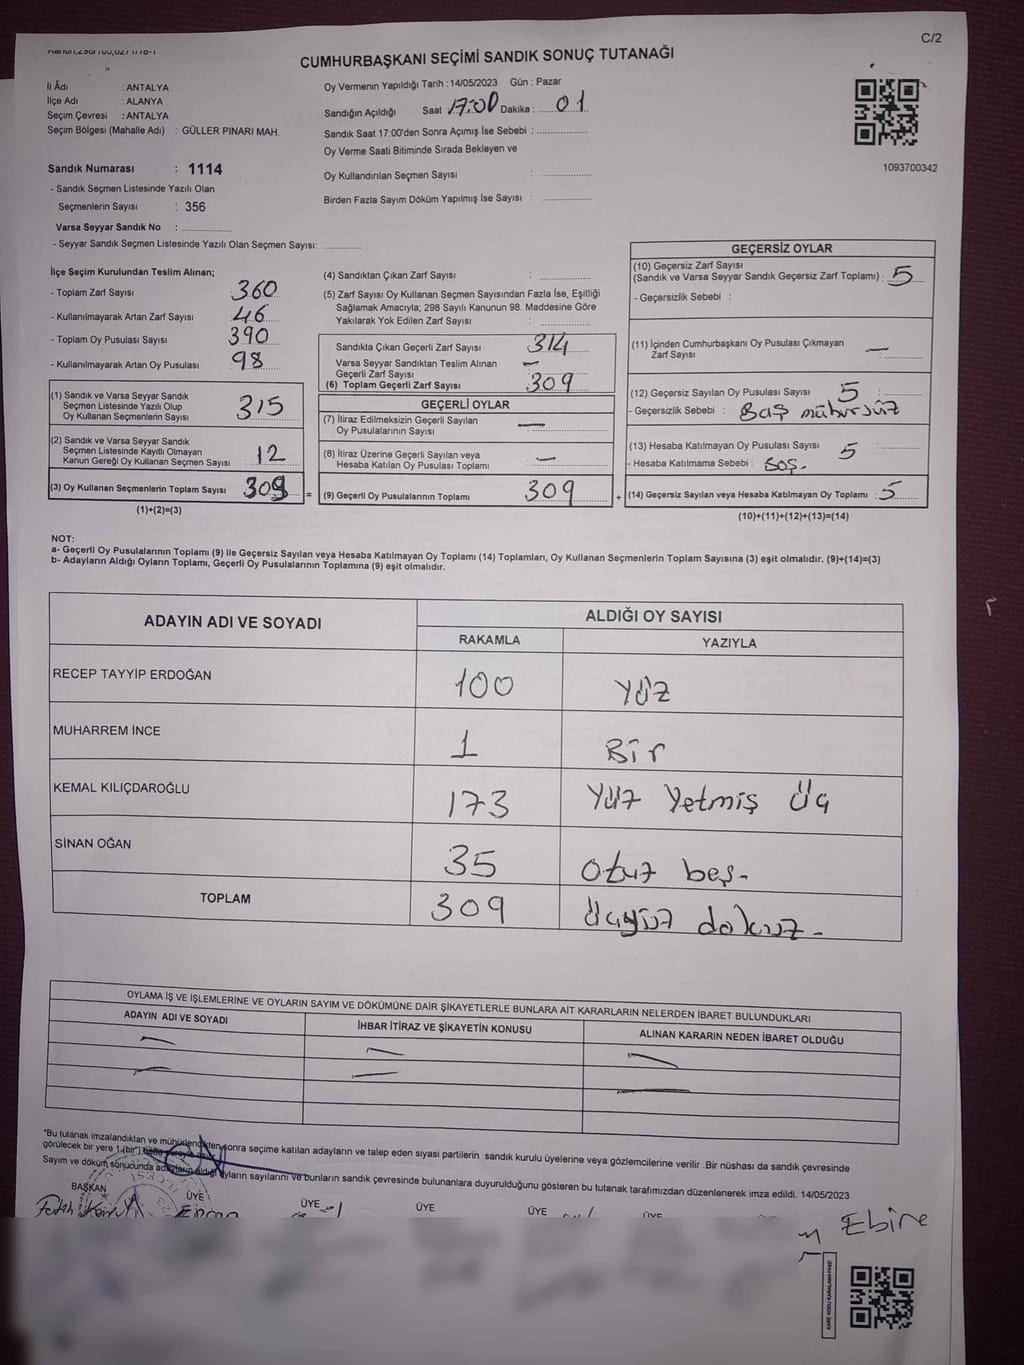 C/2
CUMHURBAŞKANI SEÇİMİ SANDIK SONUÇ TUTANAĞI
İl Adı : ANTALYA
İlçe Adı : ALANYA
Seçim Çevresi : ANTALYA
Seçim Bölgesi (Mahalle Adı) : GÜLLER PINARI MAH.
Oy Vermenin Yapıldığı Tarih : 14/05/2023 Gün : Pazar
Sandığın Açıldığı Saat 17:00 Dakika : 01
Sandık Saat 17:00'den Sonra Açımış İse Sebebi :
Oy Verme Saati Bitiminde Sırada Bekleyen ve
Oy Kullandırılan Seçmen Sayısı :
Birden Fazla Sayım Döküm Yapılmış İse Sayısı :
1093700342
Sandık Numarası : 1114
- Sandık Seçmen Listesinde Yazılı Olan
Seçmenlerin Sayısı : 356
Varsa Seyyar Sandık No :
- Seyyar Sandık Seçmen Listesinde Yazılı Olan Seçmen Sayısı:
İlçe Seçim Kurulundan Teslim Alınan;
- Toplam Zarf Sayısı 360
- Kullanılmayarak Artan Zarf Sayısı 46
- Toplam Oy Pusulası Sayısı 390
- Kullanılmayarak Artan Oy Pusulası 98
(1) Sandık ve Varsa Seyyar Sandık
Seçmen Listesinde Yazılı Olup
Oy Kullanan Seçmenlerin Sayısı 315
(2) Sandık ve Varsa Seyyar Sandık
Seçmen Listesinde Kayıtlı Olmayan
Kanun Gereği Oy Kullanan Seçmen Sayısı 12
(3) Oy Kullanan Seçmenlerin Toplam Sayısı 309 =
(1)+(2)=(3)
(4) Sandıktan Çıkan Zarf Sayısı :
(5) Zarf Sayısı Oy Kullanan Seçmen Sayısından Fazla İse, Eşitliği
Sağlamak Amacıyla; 298 Sayılı Kanunun 98. Maddesine Göre
Yakılarak Yok Edilen Zarf Sayısı :
Sandıkta Çıkan Geçerli Zarf Sayısı 314
Varsa Seyyar Sandıktan Teslim Alınan
Geçerli Zarf Sayısı —
(6) Toplam Geçerli Zarf Sayısı 309
GEÇERLİ OYLAR
(7) İtiraz Edilmeksizin Geçerli Sayılan
Oy Pusulalarının Sayısı —
(8) İtiraz Üzerine Geçerli Sayılan veya
Hesaba Katılan Oy Pusulası Toplamı —
(9) Geçerli Oy Pusulalarının Toplamı 309 +
GEÇERSİZ OYLAR
(10) Geçersiz Zarf Sayısı
(Sandık ve Varsa Seyyar Sandık Geçersiz Zarf Toplamı) : 5
- Geçersizlik Sebebi :
(11) İçinden Cumhurbaşkanı Oy Pusulası Çıkmayan
Zarf Sayısı : —
(12) Geçersiz Sayılan Oy Pusulası Sayısı : 5
- Geçersizlik Sebebi : Baş mühürsüz
(13) Hesaba Katılmayan Oy Pusulası Sayısı : 5
- Hesaba Katılmama Sebebi : Boş.
(14) Geçersiz Sayılan veya Hesaba Katılmayan Oy Toplamı : 5
(10)+(11)+(12)+(13)=(14)
NOT:
a- Geçerli Oy Pusulalarının Toplamı (9) ile Geçersiz Sayılan veya Hesaba Katılmayan Oy Toplamı (14) Toplamları, Oy Kullanan Seçmenlerin Toplam Sayısına (3) eşit olmalıdır. (9)+(14)=(3)
b- Adayların Aldığı Oyların Toplamı, Geçerli Oy Pusulalarının Toplamına (9) eşit olmalıdır.
ADAYIN ADI VE SOYADI ALDIĞI OY SAYISI
RAKAMLA YAZIYLA
RECEP TAYYİP ERDOĞAN 100 Yüz
MUHARREM İNCE 1 Bir
KEMAL KILIÇDAROĞLU 173 Yüz Yetmiş Üç
SİNAN OĞAN 35 Otuz beş.
TOPLAM 309 Üçyüz dokuz.
OYLAMA İŞ VE İŞLEMLERİNE VE OYLARIN SAYIM VE DÖKÜMÜNE DAİR ŞİKAYETLERLE BUNLARA AİT KARARLARIN NELERDEN İBARET BULUNDUKLARI
ADAYIN ADI VE SOYADI İHBAR İTİRAZ VE ŞİKAYETİN KONUSU ALINAN KARARIN NEDEN İBARET OLDUĞU
*Bu tutanak imzalandıktan ve mühürlendikten sonra seçime katılan adayların ve talep eden siyasi partilerin sandık kurulu üyelerine veya gözlemcilerine verilir .Bir nüshası da sandık çevresinde
görülecek bir yere 1.(bir) hafta süreyle asılır.
Sayım ve döküm sonucunda adayların aldığı oyların sayılarını ve bunların sandık çevresinde bulunanlara duyurulduğunu gösteren bu tutanak tarafımızdan düzenlenerek imza edildi. 14/05/2023
BAŞKAN ÜYE ÜYE ÜYE ÜYE ÜYE
Fatih
Ebine